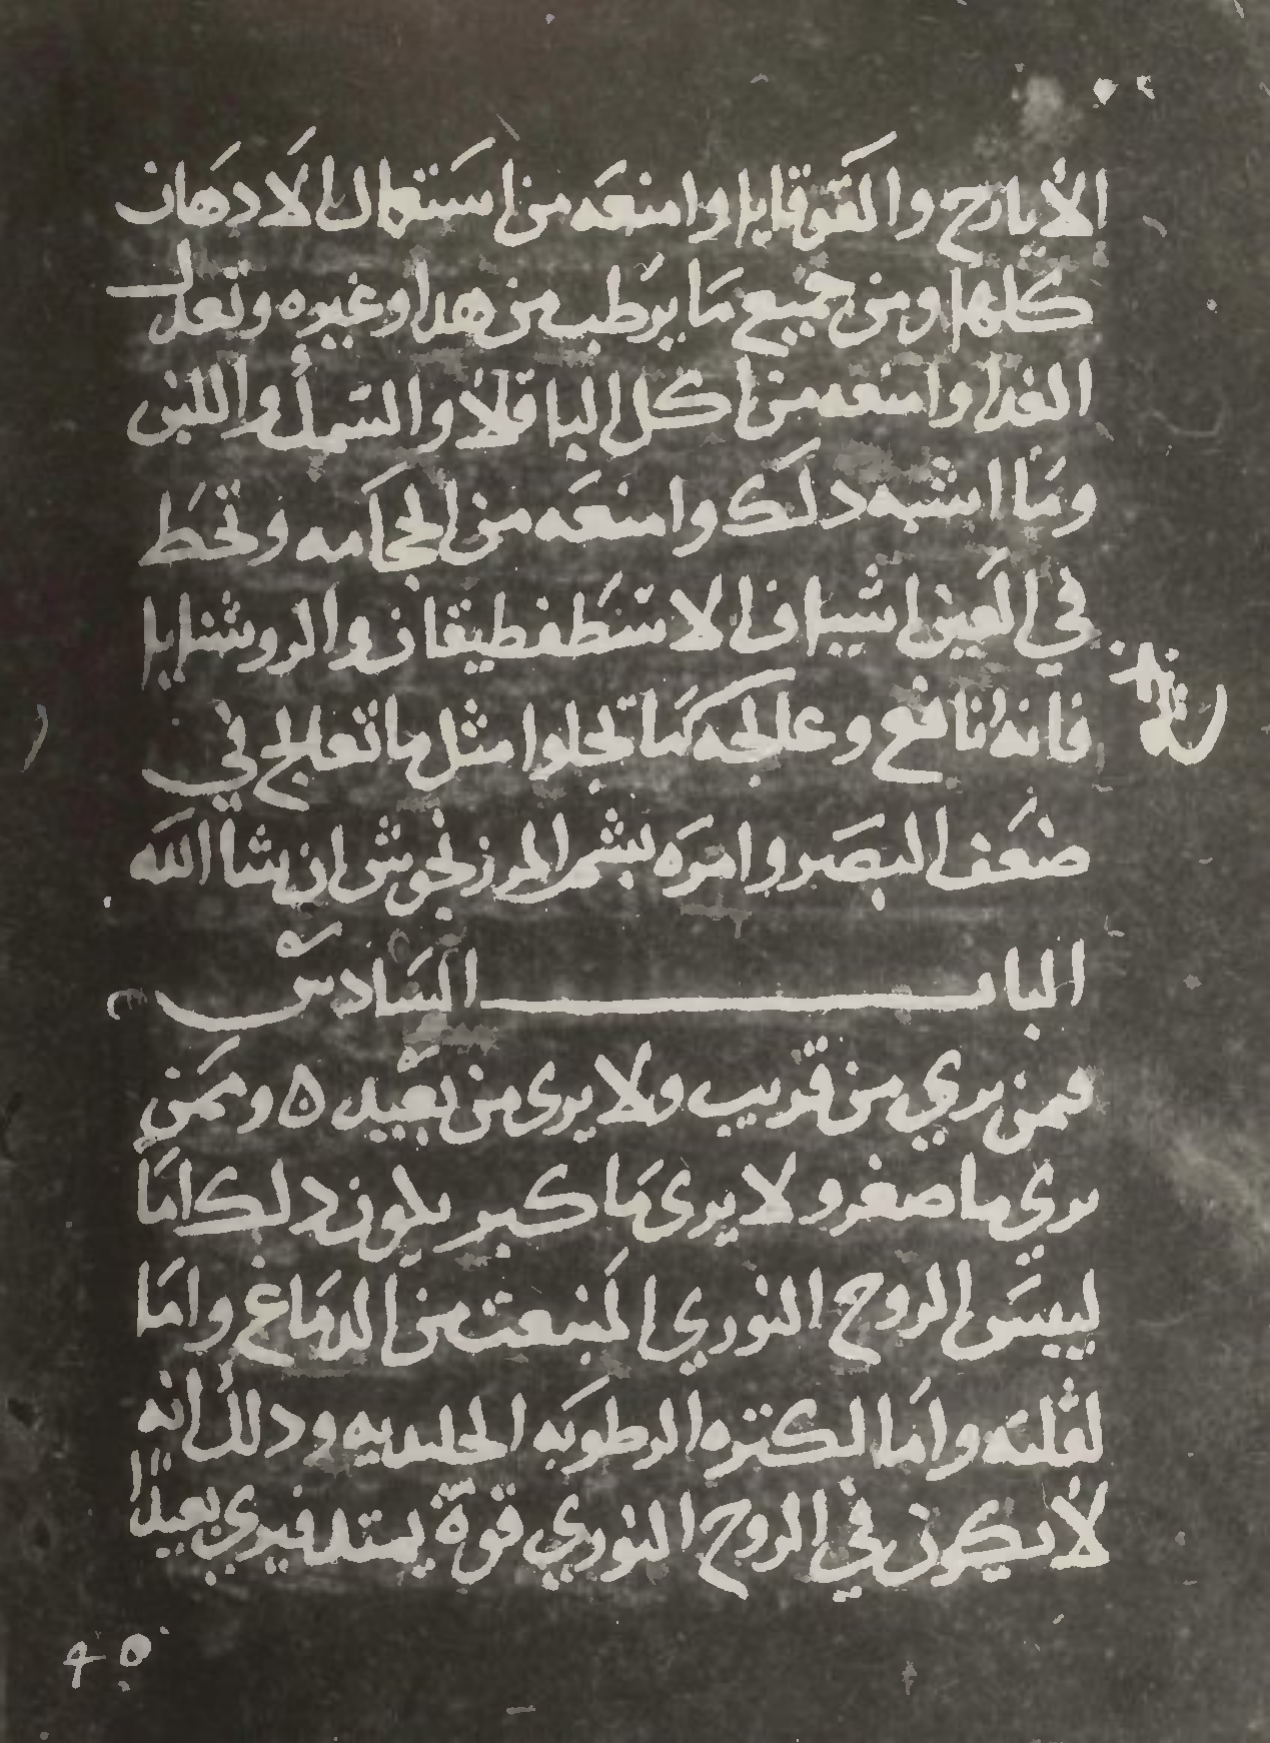 الأيارج والقوقايا وامنعه من استعمال الادهان
كلها ومن جميع ما يرطب من هدا وغيره وتعدل
الغدا وامنعه من اكل الباقلا والسمك واللبن
وما اشبه دلك وامنعه من الحجامه وتخط
في العين اشياف الاسطفطيقان والروشنايا
فانه نافع وعالجه كما تجلوا مثل ما تعالج في
ضعف البصر وامره بشم المرزنجوش ان شا الله
الباب السادس
فمن يري من قريب ولا يرى من بعيد ٥ وممن
يري ما صغر ولا يرى ما كبر يكون دلك اما
ليبس الروح النوري المنبعث من الدماغ واما
لقلته واما لكثره الرطوبه الجليديه ودلك انه
لا يكون في الروح النوري قوة يمتد فيري بعيدا